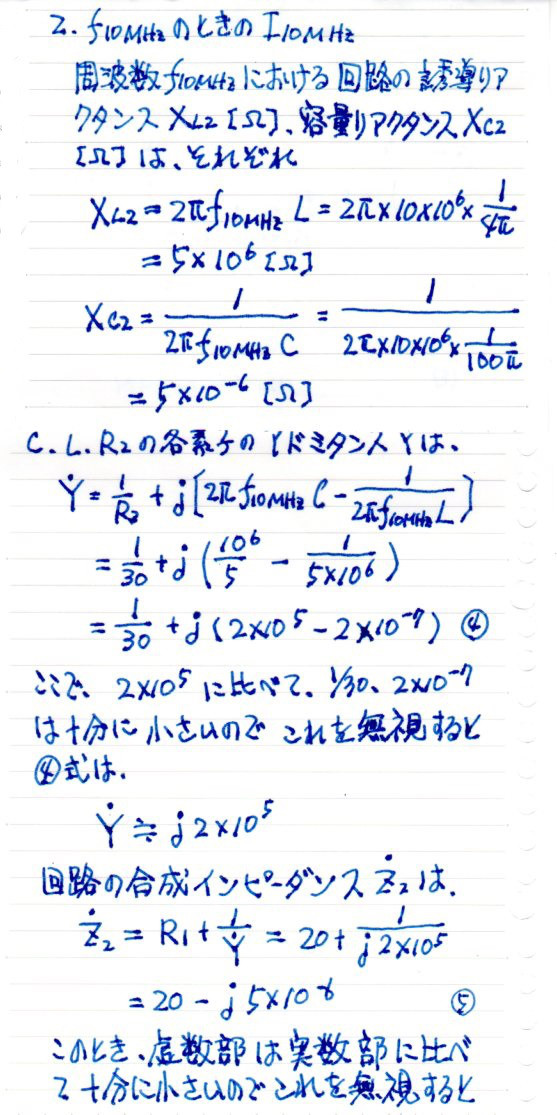 2. f10MHzのときのI10MHz
周波数f10MHzにおける回路の誘導リア
クタンスXL2[Ω]、容量リアクタンスXC2
[Ω]は、それぞれ
XL2 = 2πf10MHz L = 2π×10×10⁶× 1/4π
= 5×10⁶ [Ω]
XC2 = 1/(2πf10MHz C) = 1/(2π×10×10⁶× 1/100π)
= 5×10⁻⁶ [Ω]
C.L.R2の各素子のYドミタンスYは、
Ẏ = 1/R2 + j[2πf10MHz C - 1/(2πf10MHz L)]
= 1/30 + j(10⁶/5 - 1/(5×10⁶))
= 1/30 + j(2×10⁵-2×10⁻⁷) ④
ここで、2×10⁵に比べて、1/30、2×10⁻⁷
は十分に小さいのでこれを無視すると
④式は、
Ẏ ≒ j2×10⁵
回路の合成インピーダンスŻ2は、
Ż2 = R1 + 1/Ẏ = 20 + 1/(j2×10⁵)
= 20 - j5×10⁻⁶ ⑤
このとき、虚数部は実数部に比べ
て十分に小さいのでこれを無視すると